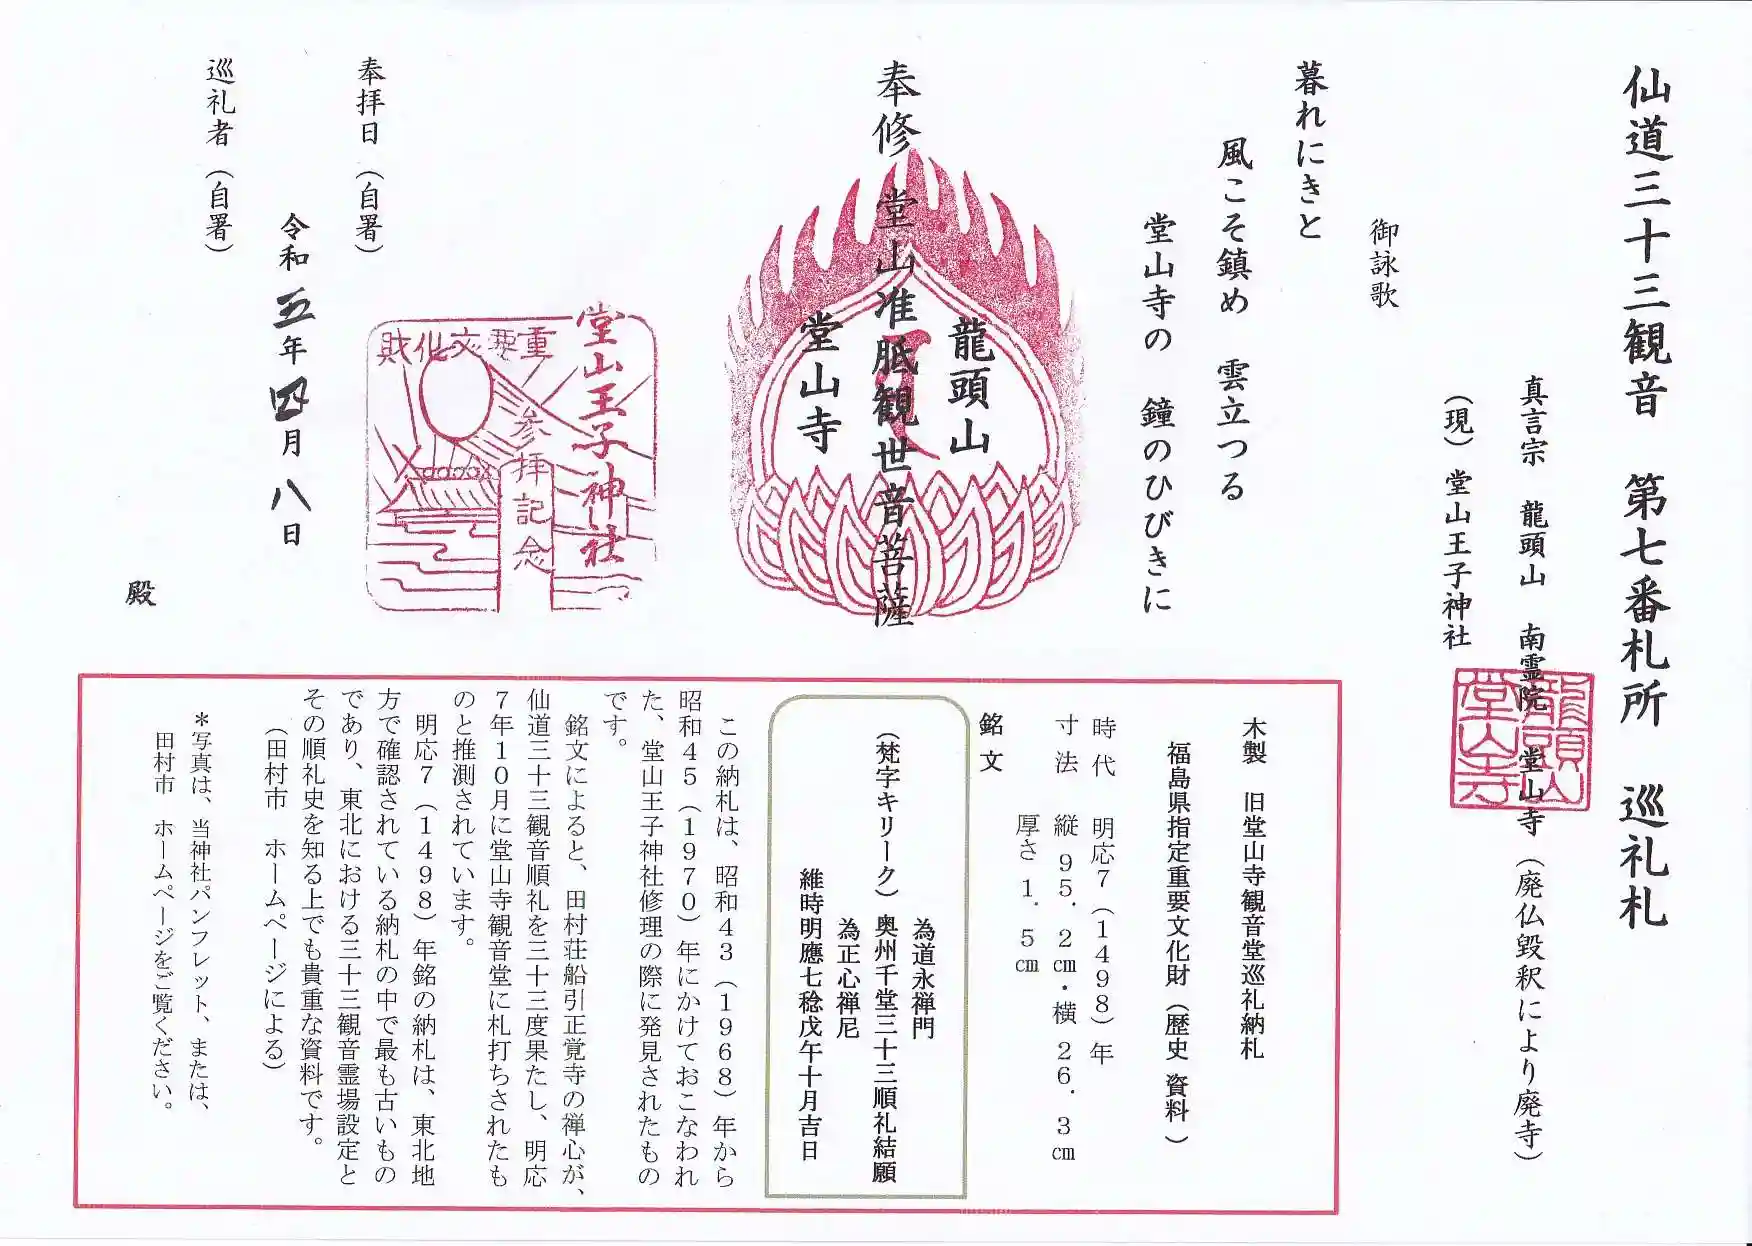 仙道三十三観音　第七番札所　巡礼札
真言宗　龍頭山　南霊院　堂山寺（廃仏毀釈により廃寺）
龍頭山
堂山寺
（現）堂山王子神社
御詠歌
暮れにきと
風こそ鎮め　雲立つる
堂山寺の　鐘のひびきに
奉修　堂山准胝観世音菩薩
龍頭山
堂山寺
重要文化財
堂山王子神社
参拝記念
奉拝日（自署）
令和五年四月八日
巡礼者（自署）
殿
木製　旧堂山寺観音堂巡礼納札
福島県指定重要文化財（歴史 資料）
時代　明応７（１４９８）年
寸法　縦 ９５．２㎝・横 ２６．３㎝
厚さ １．５㎝
銘文
為道永禅門
（梵字キリーク）奥州千堂三十三順礼結願
為正心禅尼
維時明應七稔戊午十月吉日
この納札は、昭和４３（１９６８）年から
昭和４５（１９７０）年にかけておこなわれ
た、堂山王子神社修理の際に発見されたもの
です。
銘文によると、田村荘船引正覚寺の禅心が、
仙道三十三観音順礼を三十三度果たし、明応
７年１０月に堂山寺観音堂に札打ちされたも
のと推測されています。
明応７（１４９８）年銘の納札は、東北地
方で確認されている納札の中で最も古いもの
であり、東北における三十三観音霊場設定と
その順礼史を知る上でも貴重な資料です。
（田村市　ホームページによる）
＊写真は、当神社パンフレット、または、
田村市　ホームページをご覧ください。